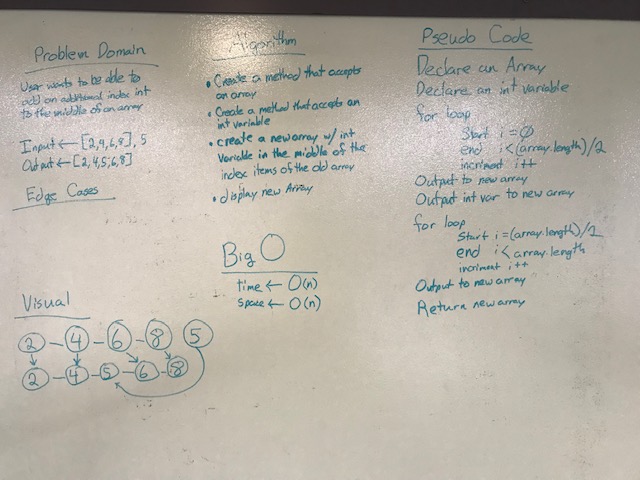 Problem Domain
User wants to be able to
add an additional index int
to the middle of an array
Input ← [2,4,6,8], 5
Output ← [2,4,5,6,8]
Edge Cases
Visual
2 - 4 - 6 - 8 5
2 - 4 - 5 - 6 - 8
Algorithm
• Create a method that accepts
an array
• Create a method that accepts an
int variable
• create a new array w/ int
variable in the middle of the
index items of the old array
• display new Array
Big O
time ← O(n)
space ← O(n)
Pseudo Code
Declare an Array
Declare an int variable
for loop
Start i = 0
end i < (array.length)/2
incriment i++
Output to new array
Output int var to new array
for loop
Start i = (array.length)/2
end i < array.length
incriment i++
Output to new array
Return new array